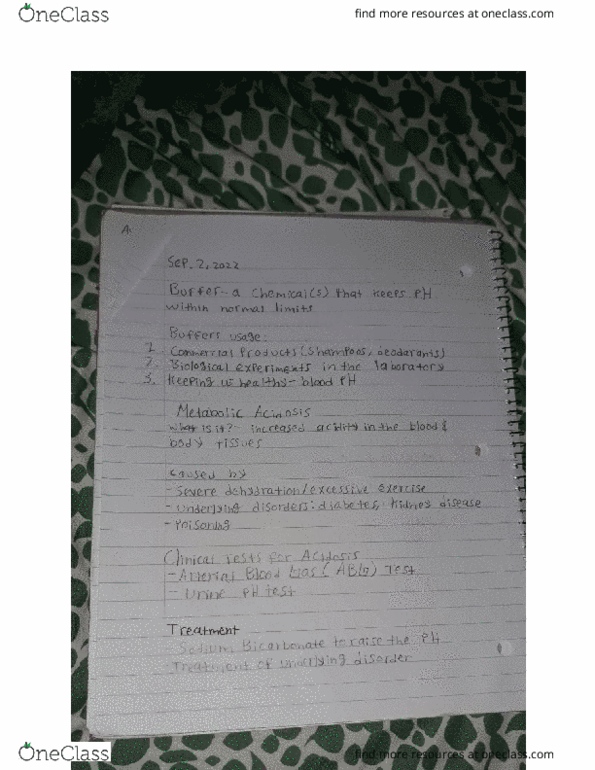 OneClass
find more resources at oneclass.com
A.
Sep. 2, 2022
Buffer - a chemical(s) that keeps PH
within normal limits
Buffers usage:
1. Commercial Products (Shampoos, deodarants)
2. Biological experiments in the laboratory
3. Keeping us healthy - blood PH
Metabolic Acidosis
What is it? - increased acidity in the blood &
body tissues
Caused by
- Severe dehydration/excessive exercise
- Underlying disorders: diabetes, kidney disease
- Poisoning
Clinical Tests for Acidosis
- Arterial Blood Gas (ABG) Test
- Urine PH test
Treatment
- Sodium Bicarbonate to raise the PH
- Treatment of underlying disorder
OneClass
find more resources at oneclass.com